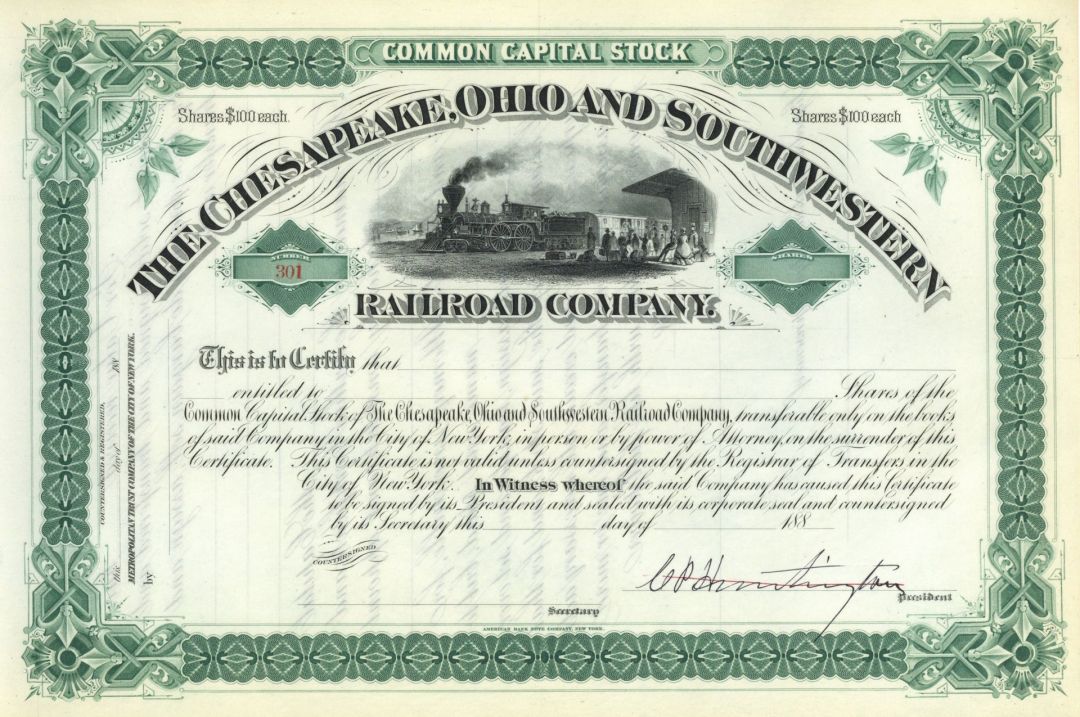 COMMON CAPITAL STOCK
Shares $100 each.
Shares $100 each
THE CHESAPEAKE, OHIO AND SOUTHWESTERN
NUMBER
301
SHARES
RAILROAD COMPANY.
This is to Certify that
entitled to Shares of the
Common Capital Stock of The Chesapeake, Ohio and Southwestern Railroad Company, transferable only on the books
of said Company in the City of New York, in person or by power of Attorney, on the surrender of this
Certificate. This Certificate is not valid unless countersigned by the Registrar of Transfers in the
City of New York. In Witness whereof the said Company has caused this Certificate
to be signed by its President and sealed with its corporate seal and countersigned
by its Secretary this day of 188
COUNTERSIGNED
C P Huntington
President
Secretary
AMERICAN BANK NOTE COMPANY, NEW YORK.
COUNTERSIGNED & REGISTERED,
this day of 188
METROPOLITAN TRUST COMPANY OF THE CITY OF NEW YORK.
by